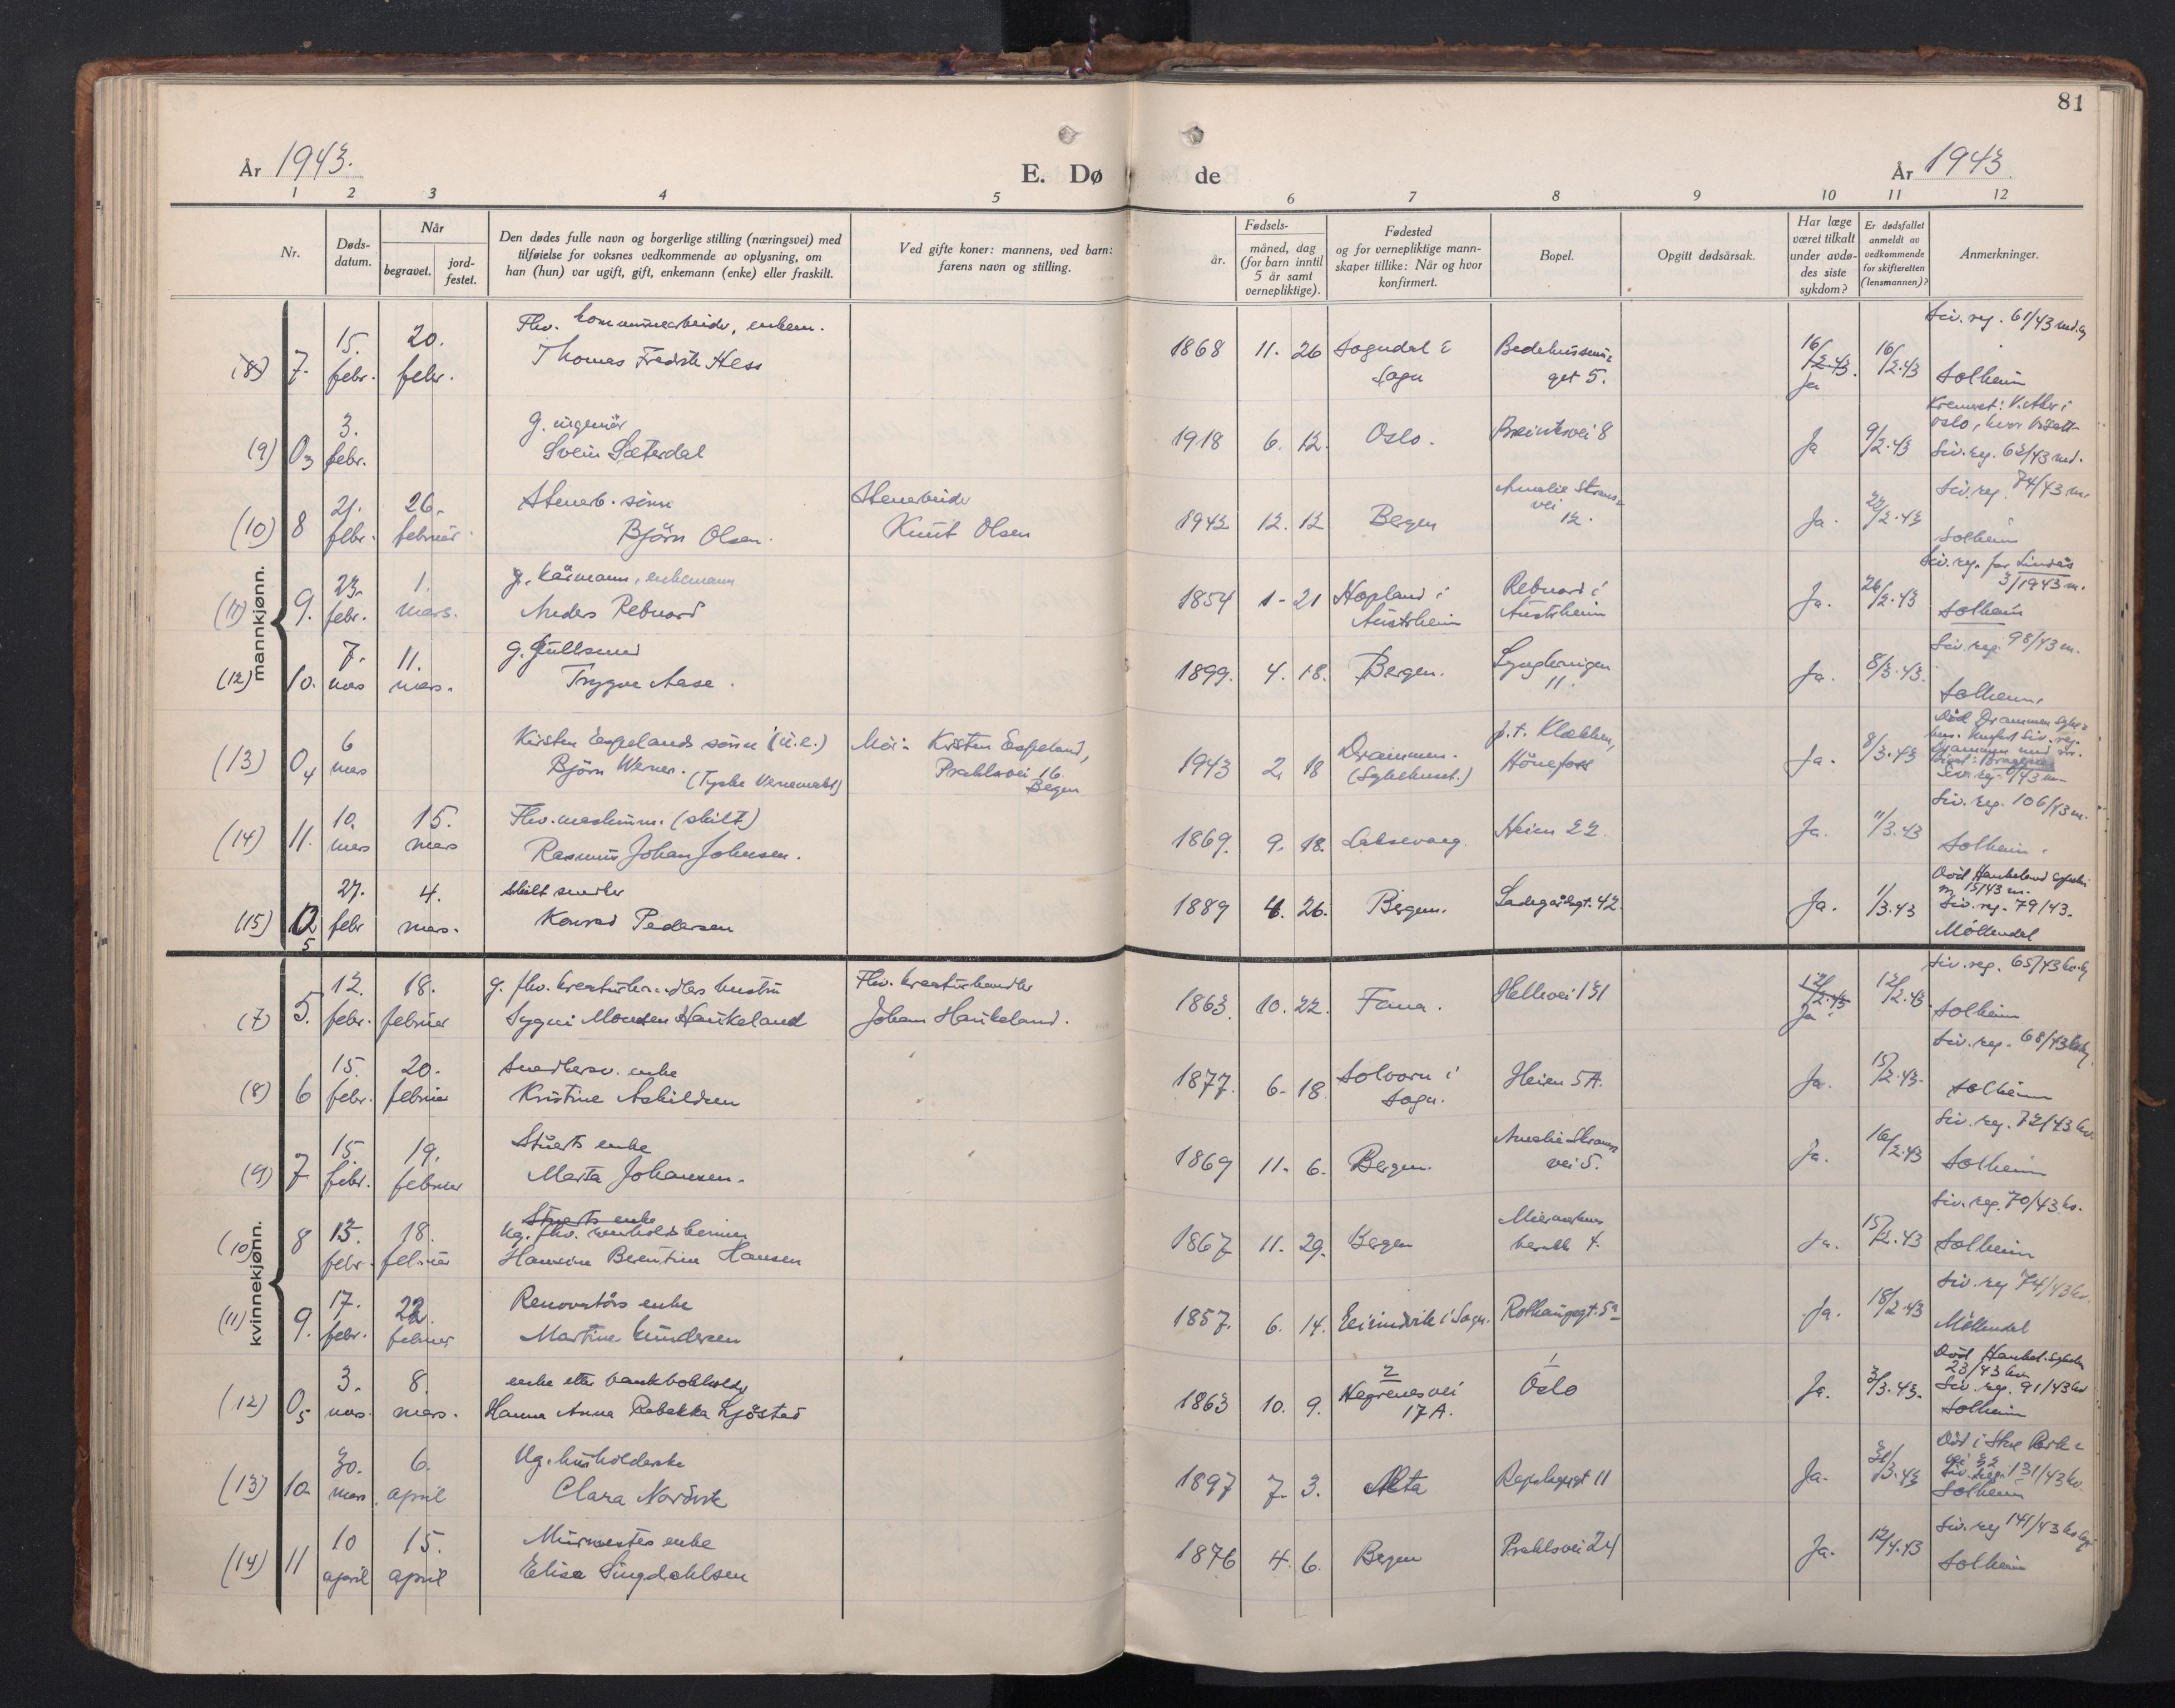 81
År 1943.
E. Døde
År 1943
1 2 3 4 5 6 7 8 9 10 11 12
Nr.
Døds-
datum.
Når
begravet.
jord-
festet.
Den dødes fulle navn og borgerlige stilling (næringsvei) med
tilføielse for voksnes vedkommende av oplysning, om
han (hun) var ugift, gift, enkemann (enke) eller fraskilt.
Ved gifte koner: mannens, ved barn:
farens navn og stilling.
Fødsels-
år.
måned, dag
(for barn inntil
5 år samt
vernepliktige).
Fødested
og for vernepliktige mann-
skaper tillike: Når og hvor
konfirmert.
Bopel.
Opgitt dødsårsak.
Har læge
været tilkalt
under avdø-
des siste
sykdom?
Er dødsfallet
anmeldt av
vedkommende
for skifteretten
(lensmannen)?
Anmerkninger.
mannkjønn.
(8) 7. 15. febr. 20. febr.
Fhv. kommunearbeider, enkem.
Thomas Fredrik Hess
1868 11. 26 Sogndal i
Sogn
16/2.43.
Ja
16/2.43
Siv. reg. 61/43
Solheim
(9) 03 3. febr.
g. ingeniør
Svein Sæterdal
1918 6. 12. Oslo.
Ja 9/2.43
Oslo, hvor
Siv. reg. 62/43
(10) 8 21. febr. 26. februar
Stenarb. sønn
Bjørn Olsen.
Stenarbeider
Knut Olsen
1942 12. 12 Bergen
Amalie Skrams
vei 12.
Ja. 22/2.43
Siv. reg. 74/43 m.
Solheim
(11) 9. 23. febr. 1. mars.
g. kårmann, enkemann
Anders Rebnord
1854 1-21 Hopland i
Austrheim
Rebnord i
Austrheim
Ja. 26/2.43
Siv. reg. for Lindås
3/1943 m.
Solheim
(12) 10. 7. mars 11. mars.
g. Gullsmed
Trygve Aase.
1899. 4. 18. Bergen.
Lyngheringen
11.
Ja. 8/3.43.
Siv. reg. 98/43 m.
Solheim.
(13) 04 6 mars
Kirsten Espelands sønn (u.e.)
Bjørn Werner. (Tyske Vernemakt)
Mor: Kirsten Espeland,
Prahlsvei 16.
Bergen
1943 2. 18 Drammen.
(Sykehuset.)
p.t. Klækken,
Hönefoss
Ja. 8/3.43
Død Drammen
(14) 11. 10. mars 15. mars
Fhv. maskinm. (skilt)
Rasmus Johan Johnsen.
1869. 9. 18. Laksevaag.
Heien 22.
Ja. 11/3.43
Siv. reg. 106/43 m.
Solheim.
(15) 0 5 27. febr 4. mars.
skilt smiler
Konrad Pedersen
1889 4. 26. Bergen.
Ladegårdsgt. 42
Ja. 1/3.43
Død Haukeland
15/43 m.
Siv. reg. 79/43.
Möllendal
kvinnekjønn.
(7) 5. 12. febr. 18. februar
g. fhv. kreaturhandlers hustru
Sygni Monsen Haukeland
Fhv. kreaturhandler
Johan Haukeland.
1863. 10. 22. Fana.
Hellevei 131
12/2.43
Ja
12/2.43.
Siv. reg. 65/43
Solheim
(8) 6 15. febr. 20. februar
Snedkersv. enke
Kristine Askildsen
1877. 6-18 Solvorn i
Sogn.
Heien 5A.
Ja. 15/2.43.
Siv. reg. 68/43
Solheim
(9) 7 15. febr. 19. februar
Stuerts enke
Marta Johansen.
1869 11. 6. Bergen.
Amalie Skrams
vei 5.
Ja. 16/2.43
Siv. reg. 72/43 kv.
Solheim
(10) 8 13. febr. 18. februar
Stuerts enke
Ug. fhv.
Hansine Berentine Hansen
1867 11. 29. Bergen
Ja. 15/2.43
Siv. reg. 70/43 kv.
Solheim
(11) 9. 17. febr. 22. februar
Renovatörs enke
Martine Gundersen
1857. 6. 14. Eivindvik i Sogn.
Rothaugsgt. 5a
Ja. 18/2.43
Siv. reg 74/43 kv.
Möllendal
(12) 05 3. mars. 8. mars.
enke etter bankbokholder
Hanna Anna Rebekka Sjöstad
1863 10. 9.
2
Hegrenesvei
17A.
1
Oslo
Ja. 3/3.43.
Død Haukel.
23/43 kv
Siv. reg. 91/43 kv
Solheim
(13) 10. 30. mars. 6. april
Ug. husholderske
Clara Nordvik
1897 7. 3. Alta
Ja. 31/3.43
Siv. reg. 131/43 kv.
Solheim
(14) 11 10 april 15. april
Murmesters enke
Elisa Singdahlsen
1876 4. 6. Bergen
Prahlsvei 24
Ja. 12/4.43
Siv. reg 141/43
Solheim